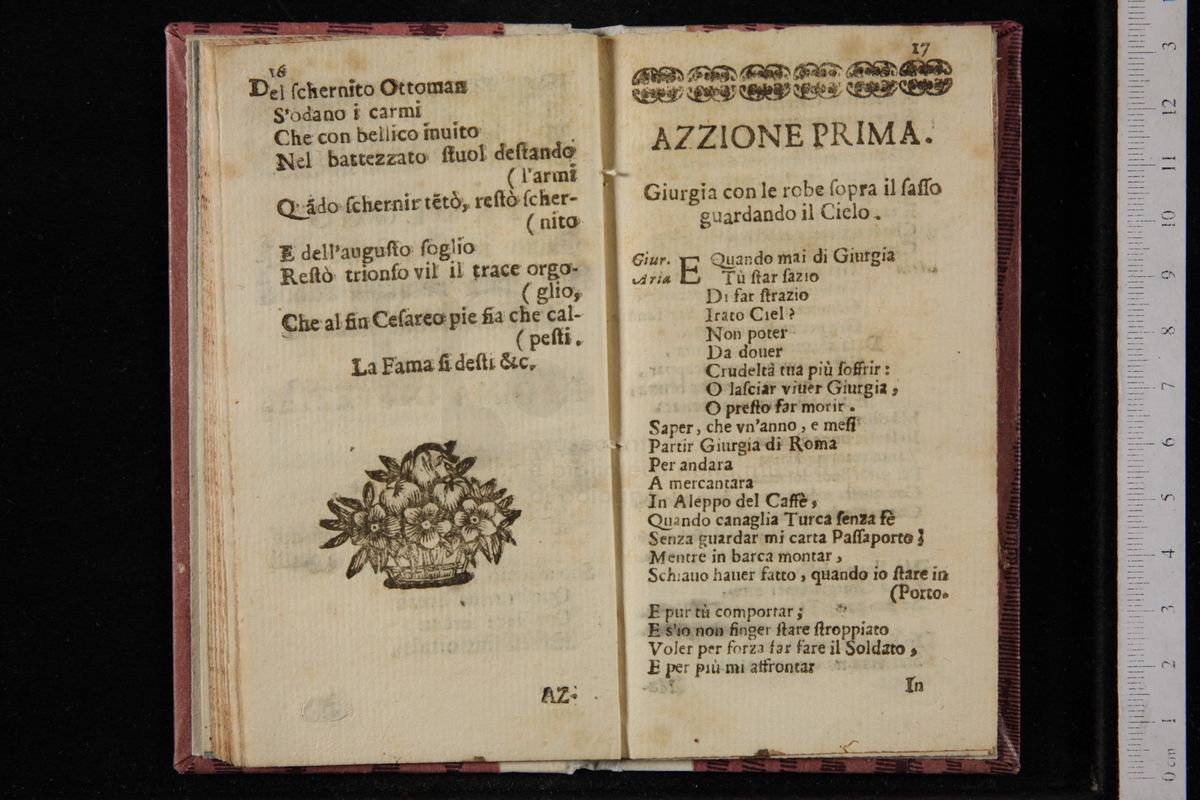 16
Del schernito Ottoman
S'odano i carmi
Che con bellico inuito
Nel battezzato stuol destando
(l'armi
Quãdo schernir tẽtò, restò scher-
(nito
E dell'augusto soglio
Restò trionfo vil il trace orgo-
(glio,
Che al fin Cesareo pie fia che cal-
(pesti.
La Fama si desti &c.
AZ-
17
AZZIONE PRIMA.
Giurgia con le robe sopra il sasso
guardando il Cielo.
Giur. E Quando mai di Giurgia
Aria Tù star sazio
Di far strazio
Irato Ciel?
Non poter
Da douer
Crudeltà tua più soffrir:
O lasciar viuer Giurgia,
O presto far morir.
Saper, che vn'anno, e mesi
Partir Giurgia di Roma
Per andara
A mercantara
In Aleppo del Caffè,
Quando canaglia Turca senza fè
Senza guardar mi carta Passaporto;
Mentre in barca montar,
Schiauo hauer fatto, quando io stare in
(Porto.
E pur tù comportar;
E s'io non finger stare stroppiato
Voler per forza far fare il Soldato,
E per più mi affrontar
In
0 cm 1 2 3 4 5 6 7 8 9 10 11 12 3